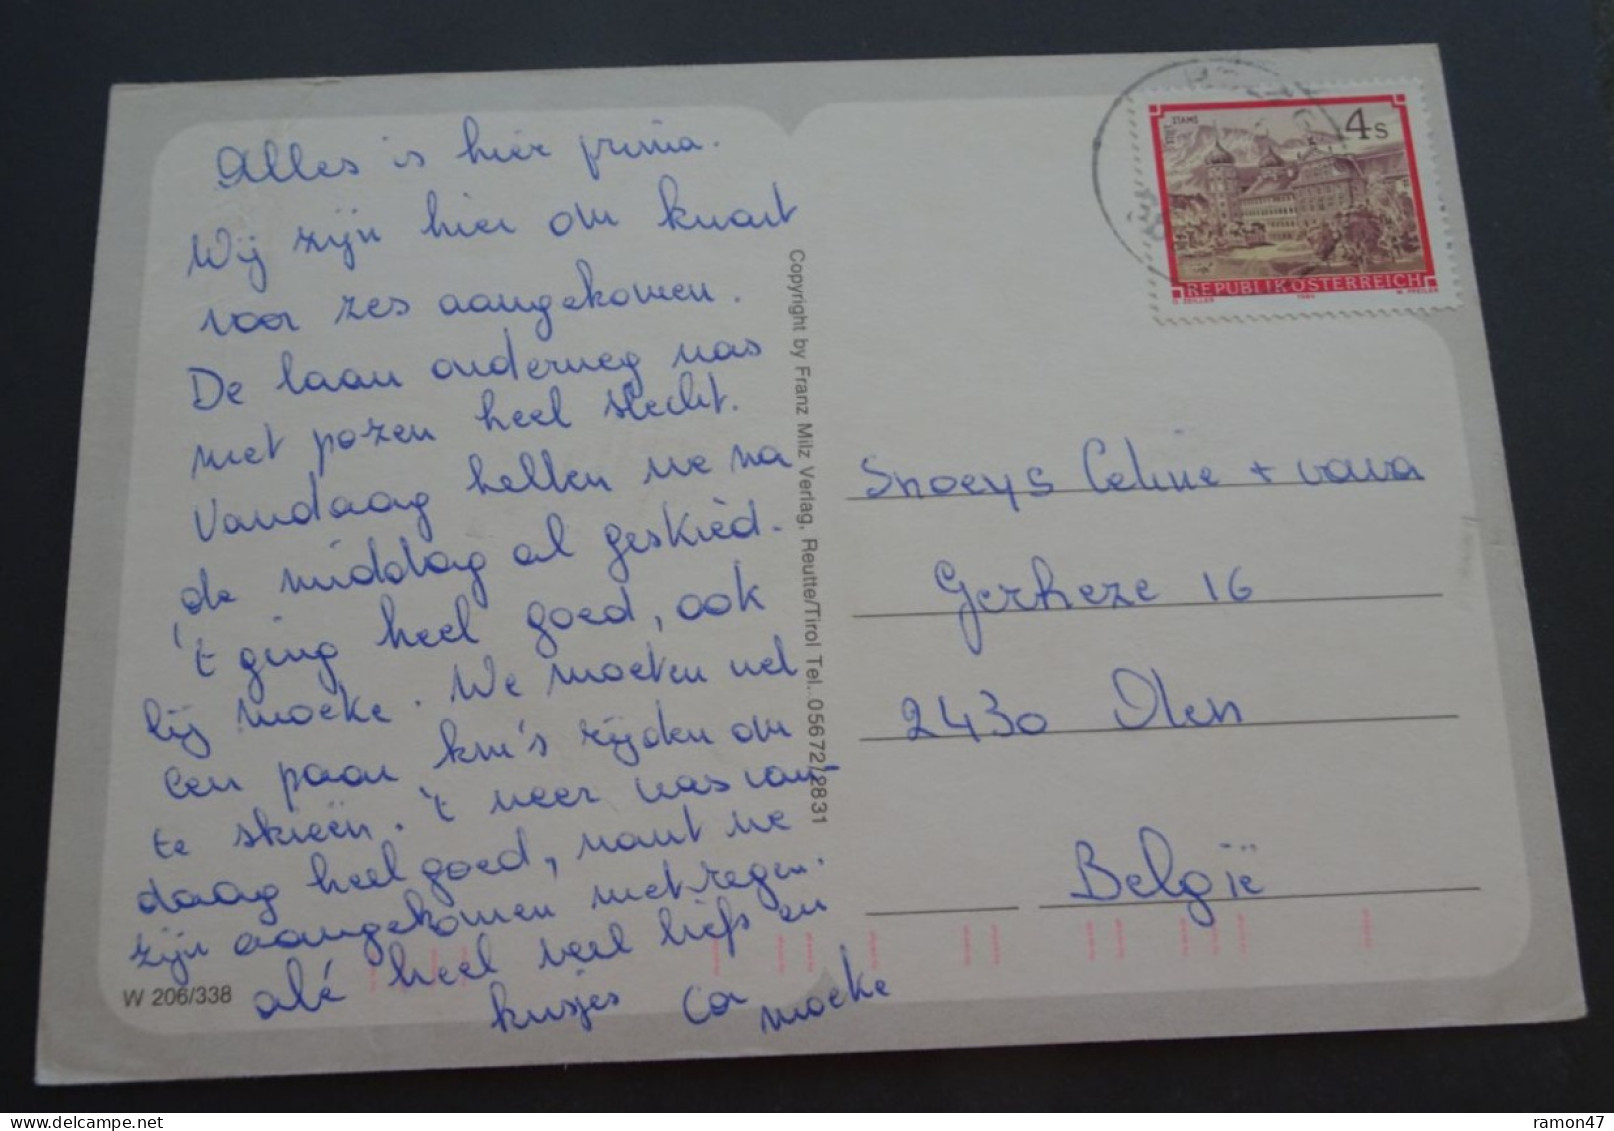 Alles is hier prima.
Wij zijn hier om kwart
voor zes aangekomen.
De baan onderweg was
met pozen heel slecht.
Vandaag hebben we na
de middag al geskiëd.
't ging heel goed, ook
bij moeke. We moeten wel
een paar km's rijden om
te skieën. 't weer was van
daag heel goed, want we
zijn aangekomen met regen.
alé heel veel liefs en
kusjes Cor
moeke
W 206/338
Copyright by Franz Milz Verlag, Reutte/Tirol Tel. 05672/2831
STIFT STAMS
4 S
REPUBLIK ÖSTERREICH
O. ZEILLER 1984 W. PFEILER
Snoeys Celine + vava
Gerheze 16
2430 Olen
België
ramon47